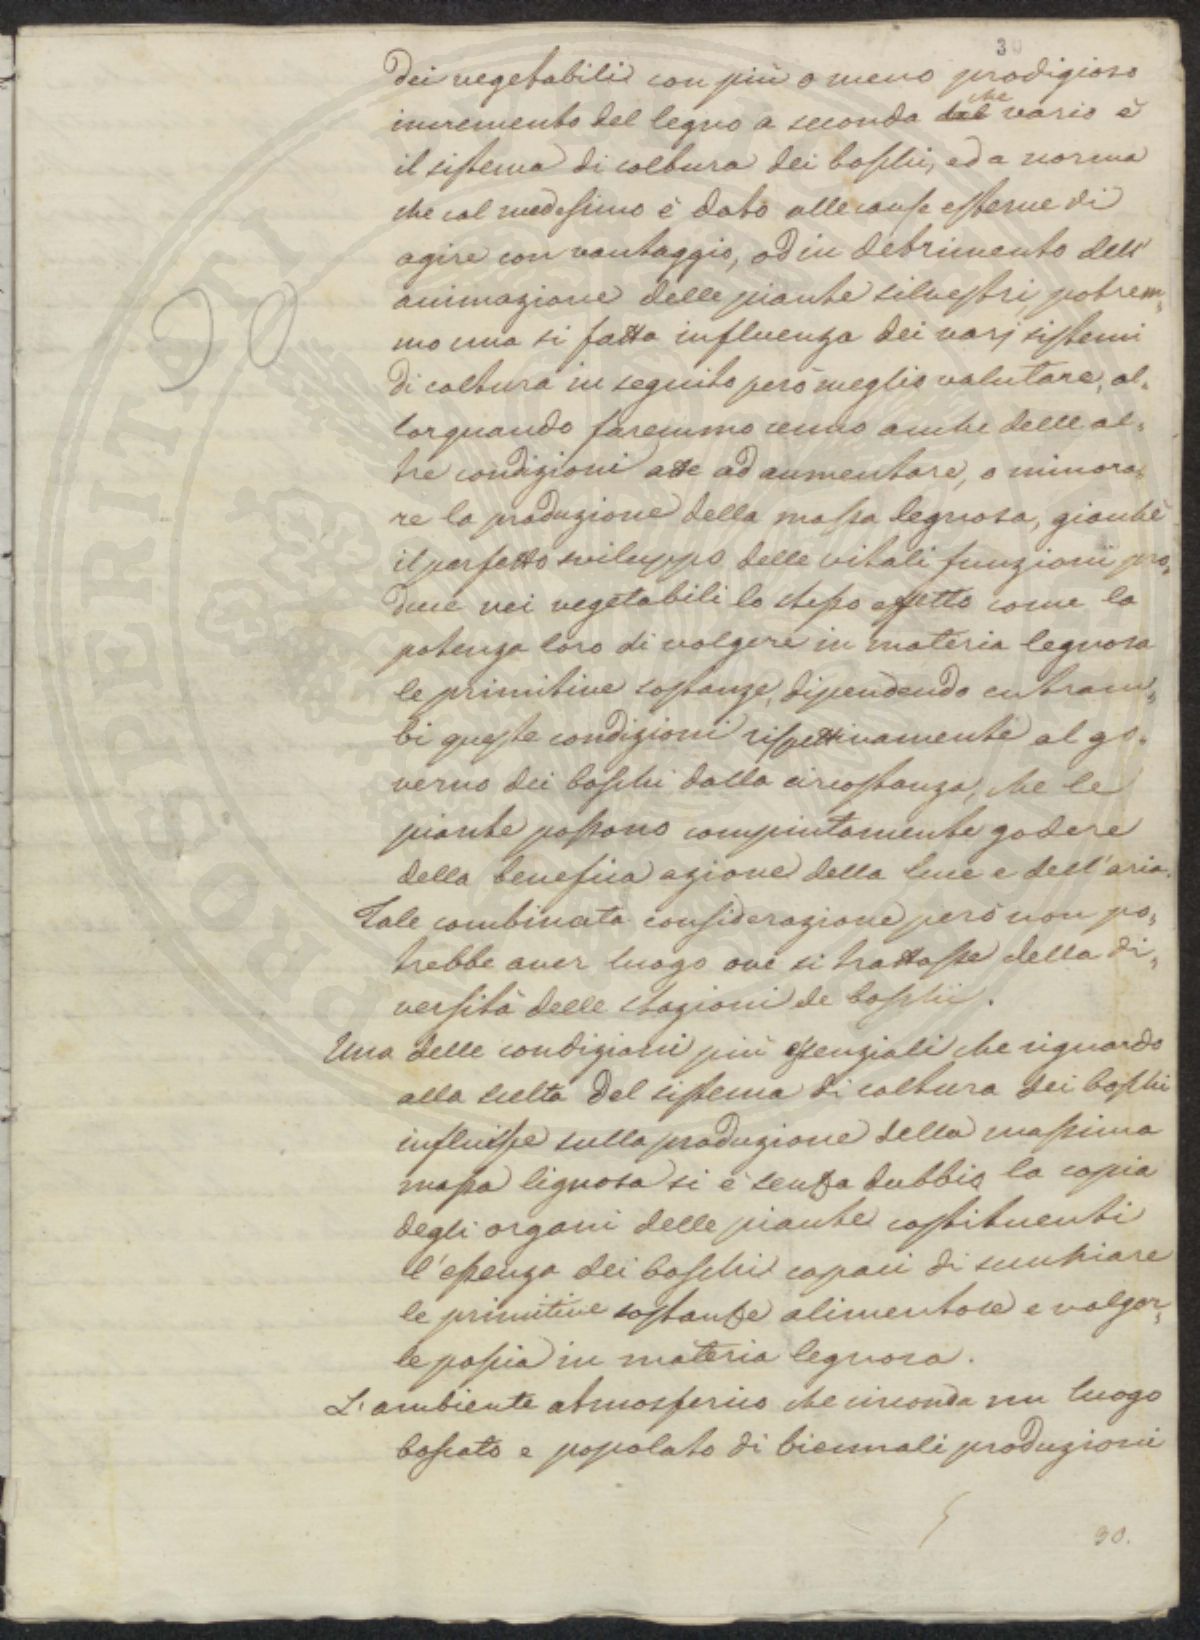 30
dei vegetabili con più o meno prodigioso
incremento del legno a seconda che vario è
il sistema di coltura dei boschi, ed a norma
che col medesimo è dato alle cause esterne di
agire con vantaggio, od in detrimento dell'
animazione delle piante silvestri, potrem-
mo una si fatta influenza dei varj sistemi
di coltura in seguito però meglio valutare, al-
lorquando faremmo cenno anche delle al-
tre condizioni atte ad aumentare, o minora-
re la produzione della massa legnosa, giacchè
il perfetto sviluppo delle vitali funzioni pro-
duce nei vegetabili lo stesso effetto come la
potenza loro di volgere in materia legnosa
le primitive sostanze, dipendendo entram-
bi queste condizioni rispettivamente al go-
verno dei boschi dalla circostanza, che le
piante possono compiutamente godere
della benefica azione della luce e dell'aria.
Tale combinata considerazione però non po-
trebbe aver luogo ove si trattasse della di-
versità delle stagioni de boschi.
Una delle condizioni più essenziali che riguardo
alla scelta del sistema di coltura dei boschi
influisse sulla produzione della massima
massa lignosa si è senza dubbio la copia
degli organi delle piante costituenti
l'essenza dei boschi capaci di succhiare
le primitive sostanze alimentose e volger-
le poscia in materia legnosa.
L'ambiente atmosferico che circonda un luogo
boscato e popolato di biennali produzioni
30.
PROSPERITATI